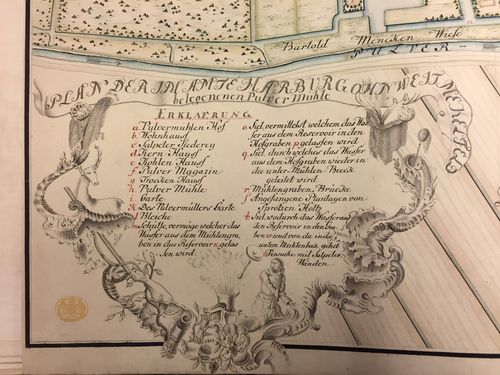 Bartold Mencken Wiese
PULVER-
PLAN DER IM AMTE HARBURG OHNWEIT NEKLETES
belegenenen Pulver Mühle
ERKLAERUNG
a. Pulvermühlen Hof
b. Wohnhaus
c. Salpeter Siederey
d. Kern Hauss
e. Kohlen Hauss
f. Pulver Magazin
g. Trocken Hauss
h. Pulver Mühle
i. Garte
k. Des Pulvermüllers Garte
l. Bleiche
m. Schütte, vermöge welcher das
Wasser aus dem Mühlengra
ben in das Reservoir n gelas
sen wird.
o. Siel, vermittelst welchem das Was
ser aus dem Reservoir in den
Hofgraben p gelassen wird
q. Siel, durch welches das Wasser
aus dem Hofgraben wieder in
die unter-Mühlen-Beeck
geleitet wird
r. Mühlengraben-Brücke
s. Angefangene Plantagen von
Spretzen Holtz
t. Siel, wodurch das Wasser aus
den Reservoir in den Gra
ben und von da in die
untere Mühlenbäk gehet
mit Salpeter
Wänden